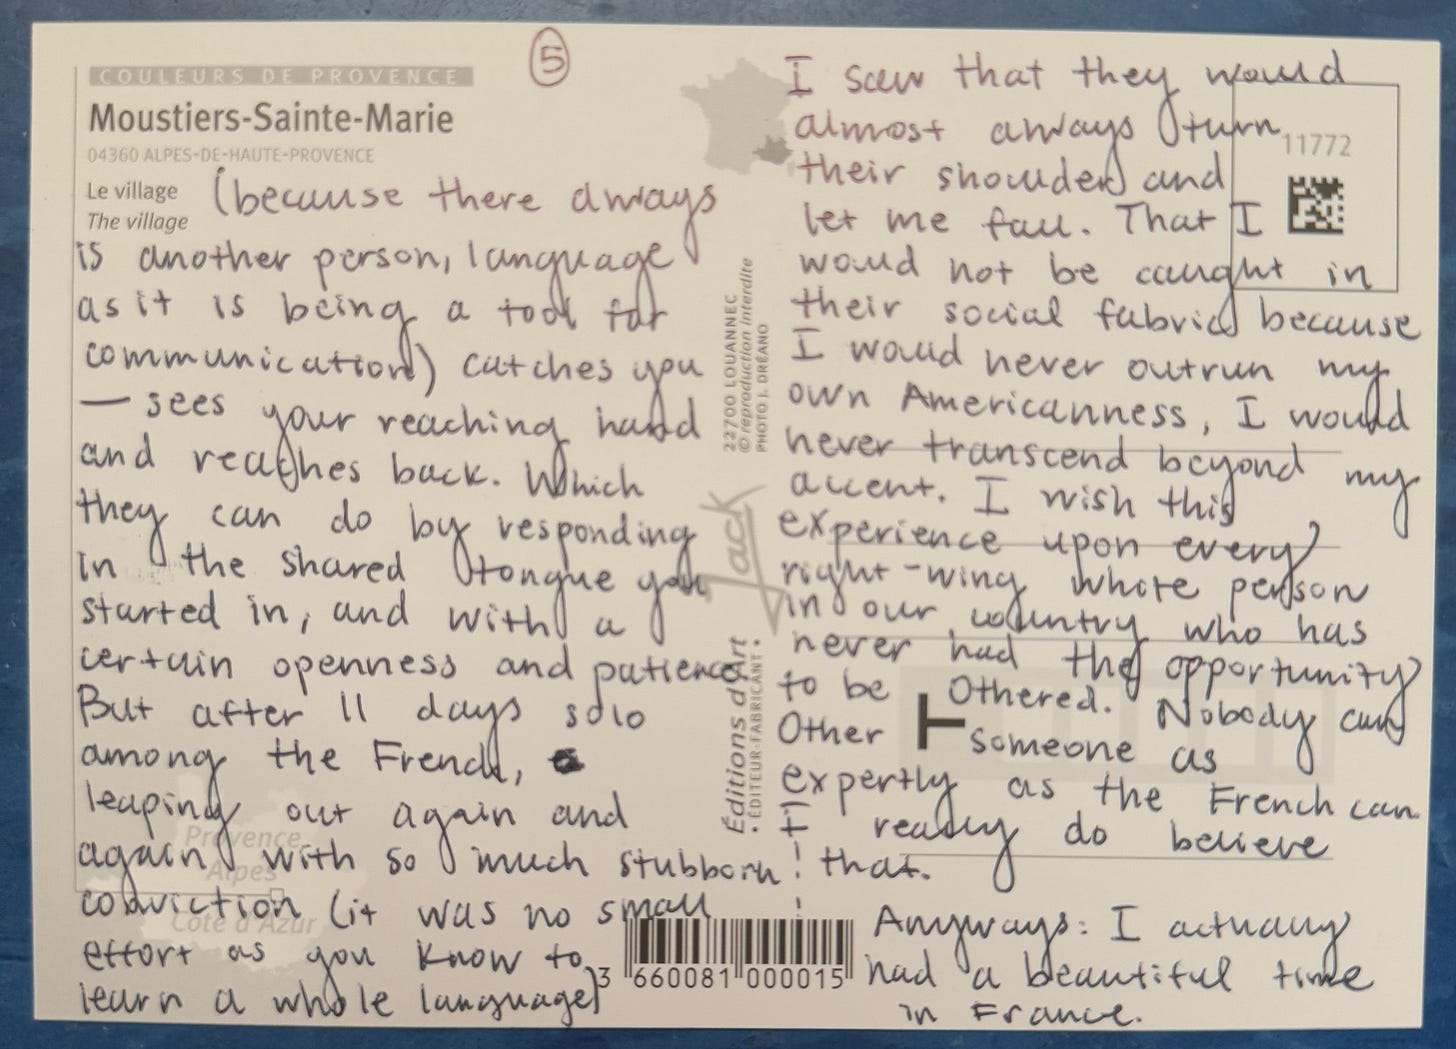 ⑤
COULEURS DE PROVENCE
Moustiers-Sainte-Marie
04360 ALPES-DE-HAUTE-PROVENCE
Le village
The village
(because there always
is another person, language
as it is being a tool for
communication) catches you
— sees your reaching hand
and reaches back. Which
they can do by responding
in the shared tongue you
started in, and with a
certain openness and patience.
But after 11 days solo
among the French,
leaping out again and
again with so much stubborn
conviction (it was no small
effort as you know to
learn a whole language)
Provence
Alpes
Côte d'Azur
22700 LOUANNEC
© reproduction interdite
PHOTO J. DRÉANO
Jack
Éditions d'Art
• ÉDITEUR-FABRICANT •
3 660081 000015
11772
I saw that they would
almost always turn
their shoulder and
let me fall. That I
would not be caught in
their social fabric because
I would never outrun my
own Americanness, I would
never transcend beyond my
accent. I wish this
experience upon every
right-wing white person
in our country who has
never had the opportunity
to be Othered. Nobody can
Other someone as
expertly as the French can.
I really do believe
that.
Anyways: I actually
had a beautiful time
in France.